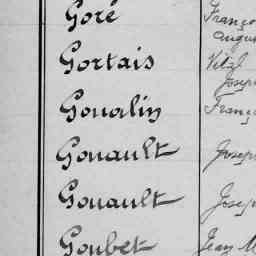 Goré Franço
augus
Gortais Vital
Joseph
Goualin Franço
Gouault Joseph
Gouault Joseph
Goubet Jean M